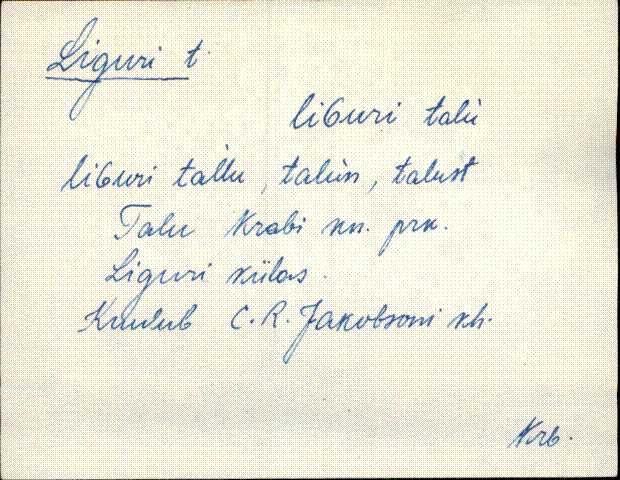 Liguri t.
liGuri talù
liGuri tal̀lu, talùn, talust
Talu Krabi kn. prk.
Liguri külas.
Kuulub C. R. Jakobsoni kh.
Krb.